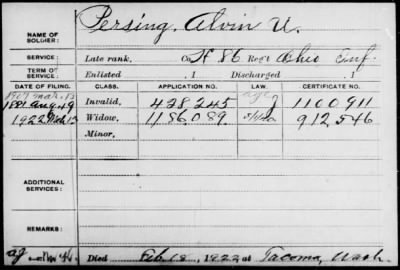 NAME OF SOLDIER: Persing, Alvin U.
SERVICE: Late rank, Co. H 86 Reg't Ohio Inf.
TERM OF SERVICE: Enlisted , 1 Discharged , 1
DATE OF FILING. CLASS. APPLICATION NO. LAW. CERTIFICATE NO.
1881 Aug. 19 Invalid, 428,245 1100911
1922 Mch 13 Widow, 1186,089 912,546
Minor,
ADDITIONAL SERVICES:
REMARKS:
Died Feb. 18, 1922 at Tacoma, Wash.